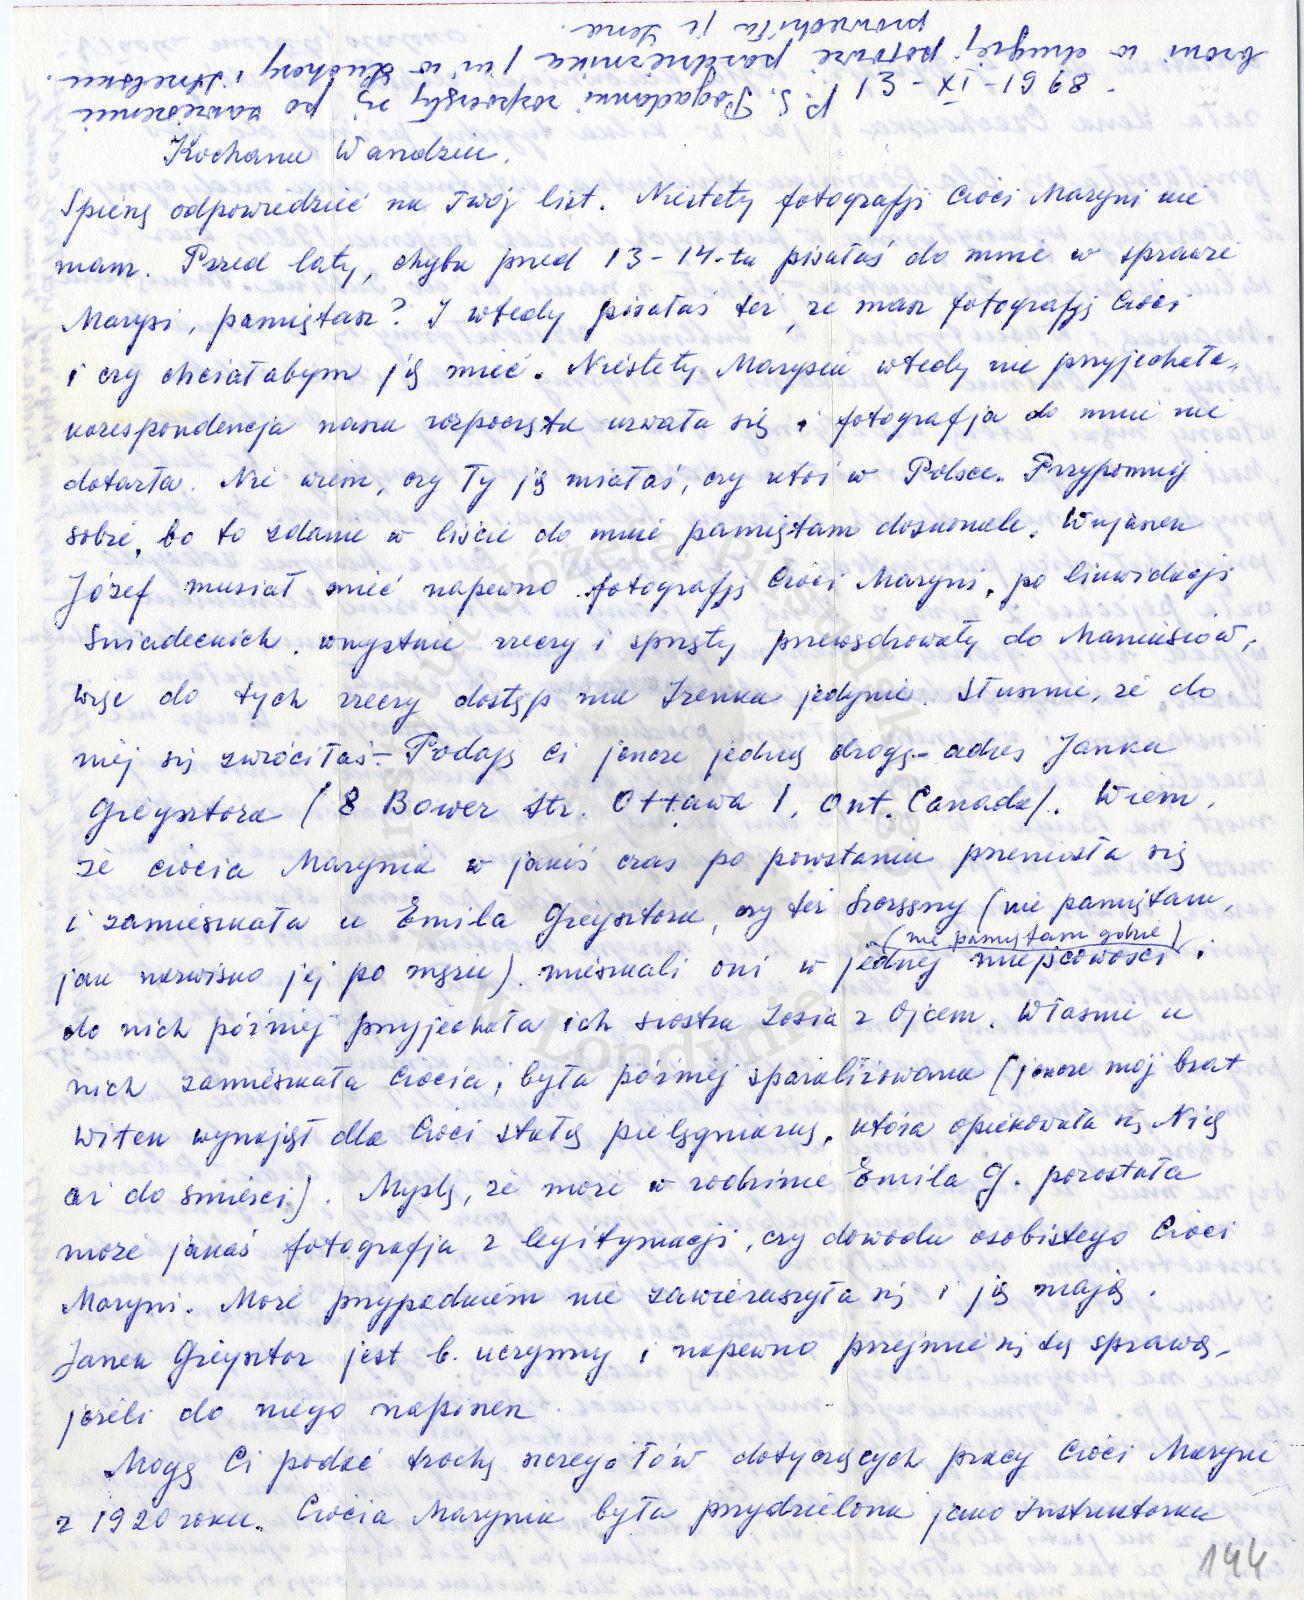 13-XI-1968.
P.S. Pogadanki rozpoczęły się po zawieszeniu
broni w drugiej połowie października / m. w Łuchory i
prowadziła je Lena.
Kochana Wandziu.
Spieszę odpowiedzieć na Twój list. Niestety fotografji Cioci Maryni nie
mam. Przed laty, chyba przed 13-14-tu pisałaś do mnie w sprawie
Marysi, pamiętasz? I wtedy pisałaś też, że masz fotografję Cioci
i czy chciałabym ją mieć. Niestety Marysia wtedy nie przyjechała,
korespondencja nasza rozpoczęta urwała się i fotografja do mnie nie
dotarła. Nie wiem, czy Ty ją miałaś, czy ktoś w Polsce. Przypomnij
sobie, bo to zdanie w liście do mnie pamiętam doskonale. Wujaszek
Józef musiał mieć napewno fotografję Cioci Maryni, po likwidacji
Śniadeckich, wszystkie rzeczy i sprzęty powędrowały do Maniusiów,
więc do tych rzeczy dostęp ma Irenka jedynie. Słusznie, że do
niej się zwróciłaś - Podaję Ci jeszcze jedną drogę - adres Janka
Giejsztora (8 Bower Str. Ottawa 1, Ont. Canada). Wiem,
że ciocia Marynia w jakiś czas po powstaniu przeniosła się
i zamieszkała u Emila Giejsztora, czy też Szczęsny (nie pamiętam,
jak nazwisko jej po mężu). mieszkali oni w jednej miejscowości (nie pamiętam gdzie) i
do nich później przyjechała ich siostra Zosia z Ojcem. Właśnie u
nich zamieszkała Ciocia; była później sparaliżowana (jeszcze mój brat
Witek wynajął dla Cioci stałą pielęgniarkę, która opiekowała się Nią
aż do śmierci). Myślę, że może w rodzinie Emila G. pozostała
może jakaś fotografja z legitymacji, czy dowodu osobistego Cioci
Maryni. Może przypadkiem nie zawieruszyła się i ją mają.
Janek Giejsztor jest b. uczynny i napewno przejmie się tą sprawą,
jeżeli do niego napiszesz.
Mogę Ci podać trochę szczegółów dotyczących pracy Cioci Maryni
z 1920 roku. Ciocia Marynia była przydzielona jako Instruktorka
144
Instytut Józefa Piłsudskiego
w Londynie